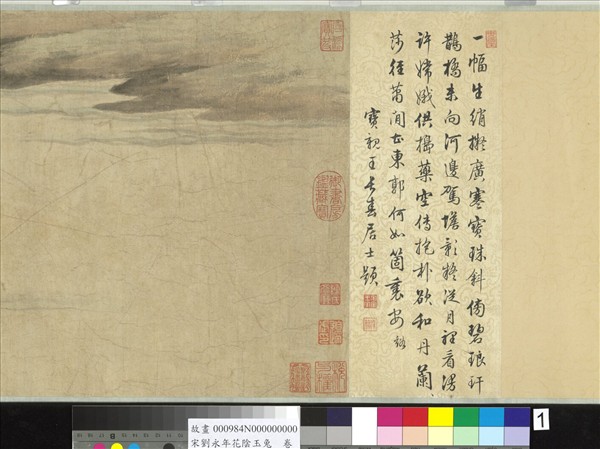 一幅生綃擬廣寒寶珠斜傍碧琅玕
鵲橋未向河邊駕蟾影擬從月裡看漫
許嫦娥俱擣藥空傳抱朴欲和丹蘭
莎徑東郭何如箇裏安
寶親王長春居士題
故畫 000984N000000000
宋劉永年花陰玉兔 卷
1